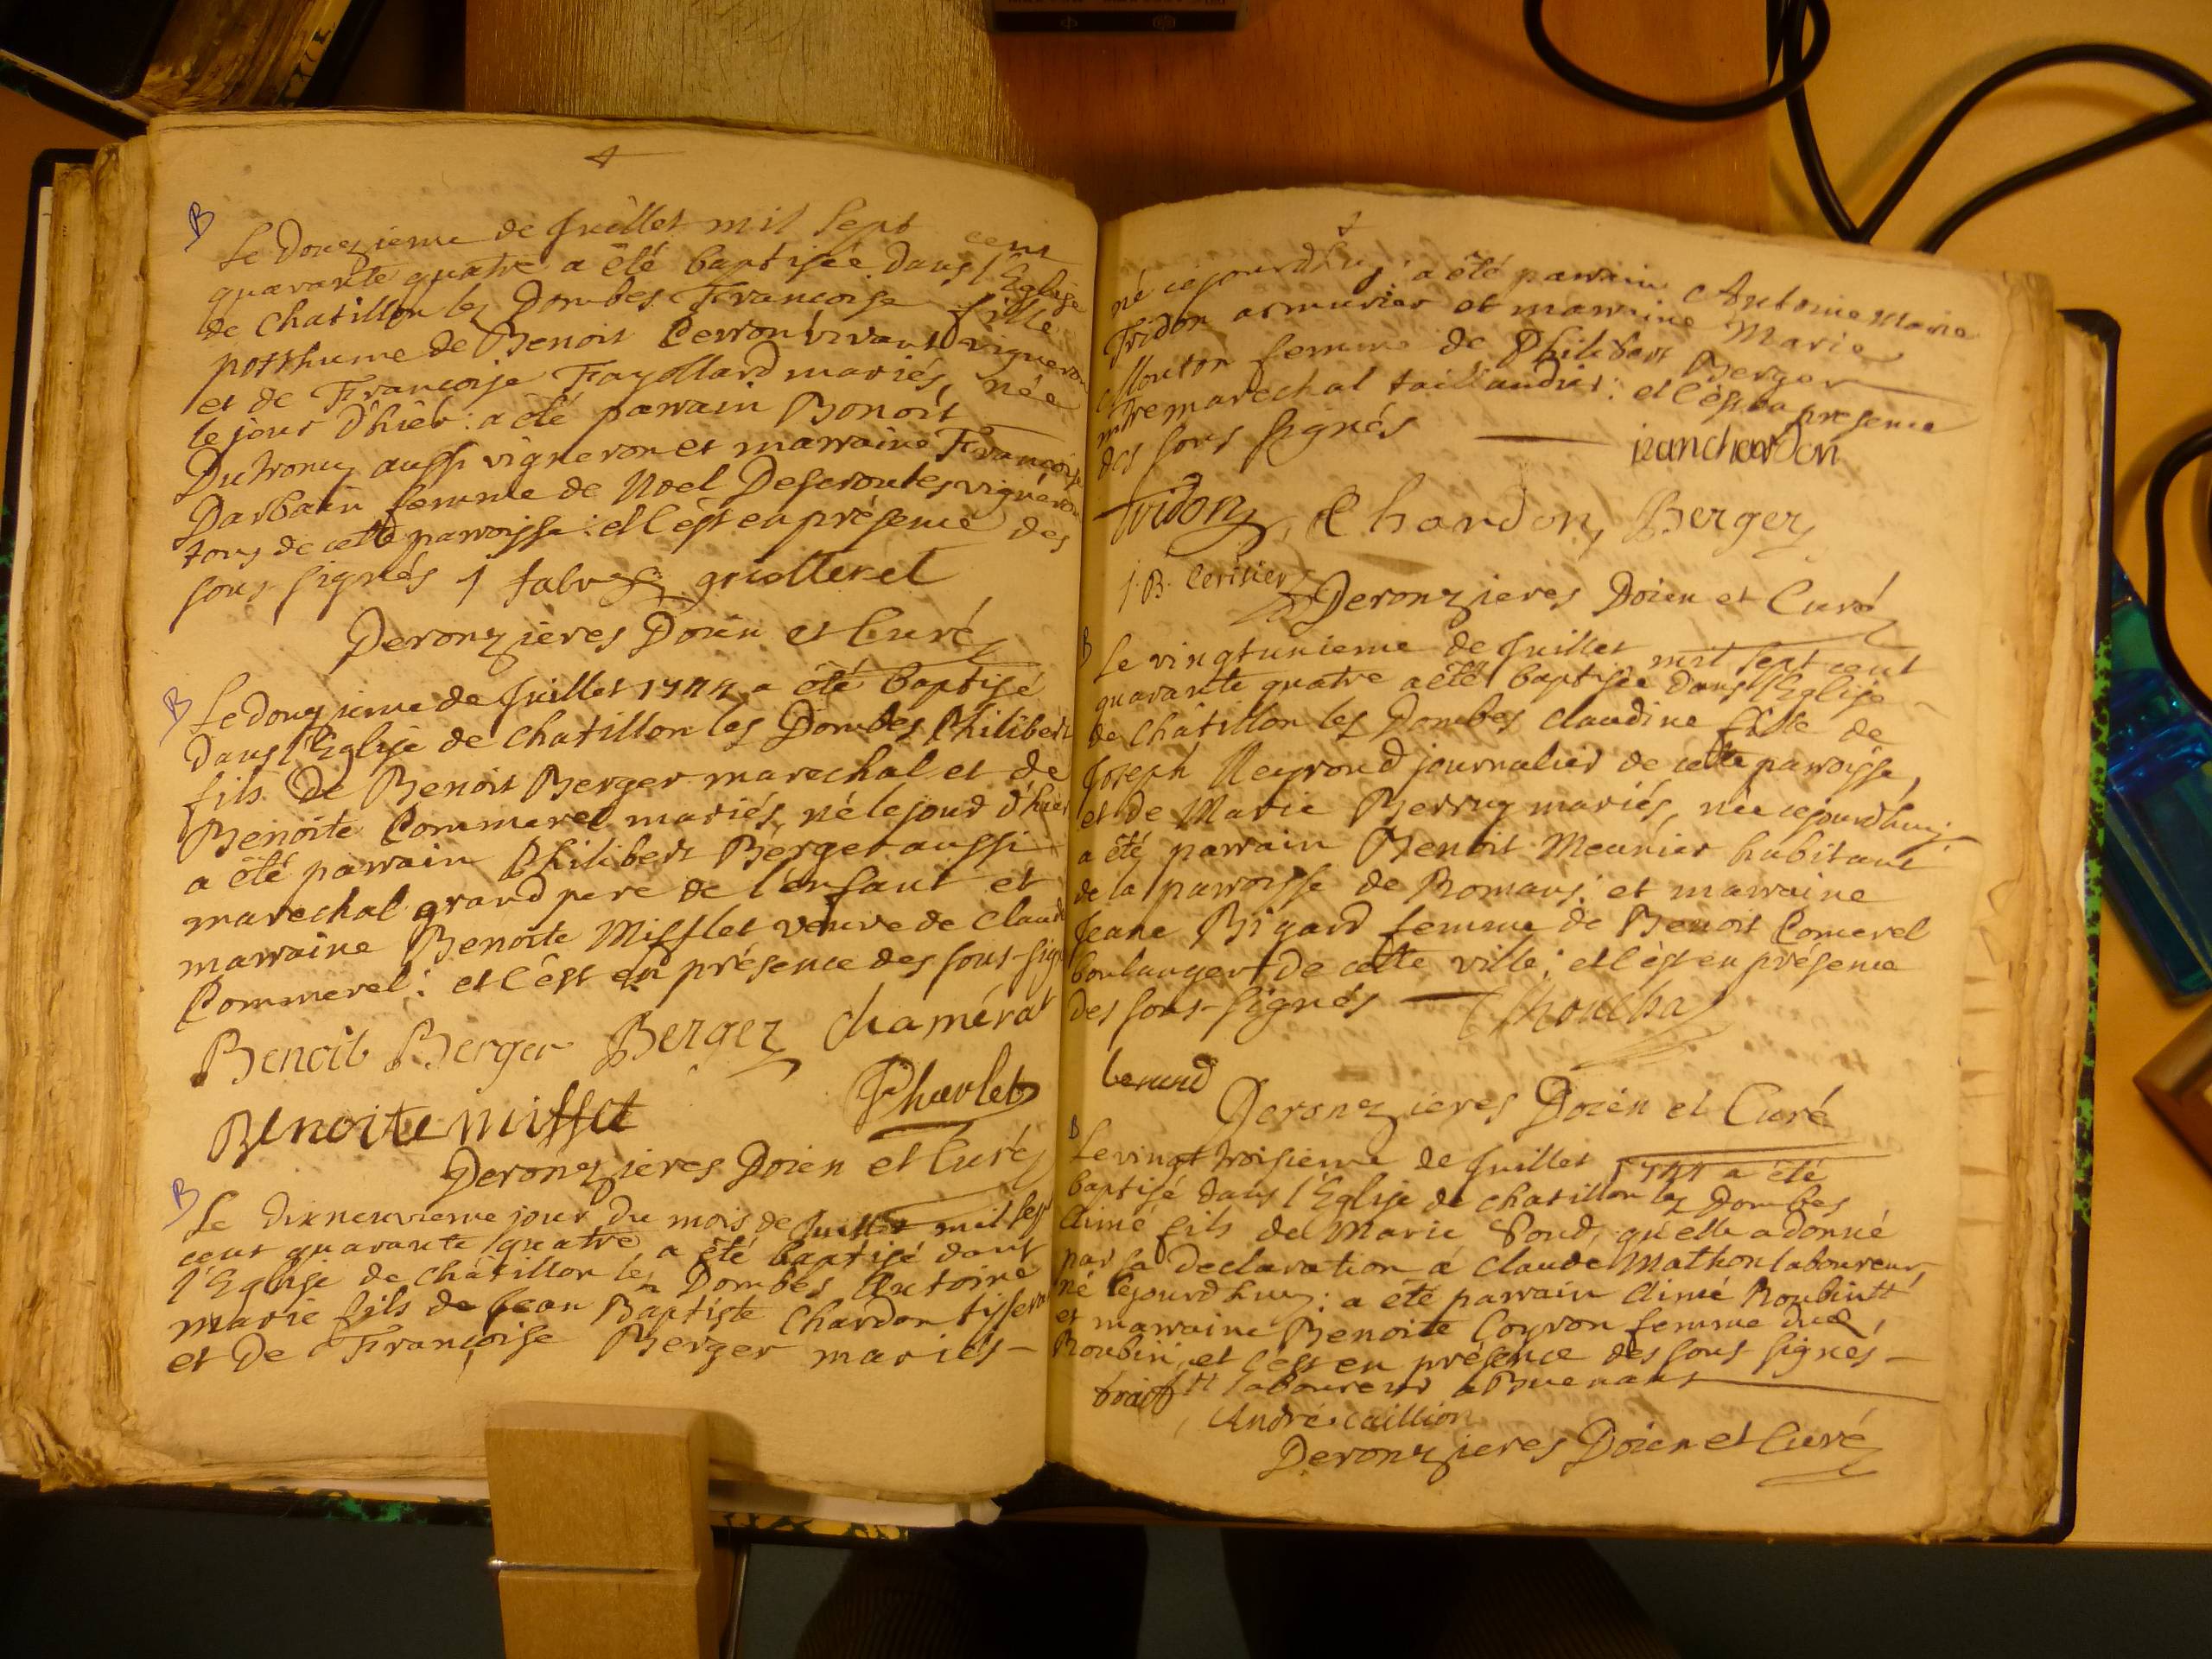 B
Le douzieme de Juillet mil sept cent
quarante quatre a été baptisée dans l'Eglise
de Chatillon lez Dombes Francoise fille
posthume de Benoit Perron vivant vigneron
et de Françoise Fayollard mariés, née
le jour d'hier : a été parrain Bonoit
Dutroncy aussi vigneron et marraine Françoise
Darbain femme de Noel Descroutes vigneron
tous de cette parroisse : et c'est en présence des
sous-signés griotteret
Deronzieres Doien et Curé
B
Le douzieme de Juillet 1744 a été baptisé
dans l'Eglise de Chatillon lez Dombes Philibert
fils de Benoit Berger marechal et de
Benoite Commerel mariés, né le jour d'hier
a été parrain Philibert Berger aussi
marechal grand pere de l'enfant et
marraine Benoite Mifflet veuve de Claude
Commerel : et c'est en présence des sous-sign
Benoit Berger Berger Chamérat
Benoite mifflet Charlet
Deronzieres Doien et Curé
B
Le dixneuvieme jour du mois de Juillet mil sept
cent quarante quatre a été baptisé dans
l'Eglise de Châtillon lez Dombes Antoine
marie fils de Jean Baptiste Chardon tisseran
et de Françoise Berger mariés -
né cejourdhuy : a été parrain Antoine Marie
Tridon armurier et marraine Marie
Mouton femme de Philibert Berger
mtre marechal taillandier : et c'est en presence
des sous signés jean chardon
tridon, Chardon, Berger
j. B. Cerisier Deronzieres Doien et Curé
B
Le vingtunieme de Juillet mil sept cent
quarante quatre a été baptisée dans l'Eglise
de Châtillon lez Dombes claudine fille de
Joseph Neyroud journalier de cette parroisse,
et de Marie Berruy mariés, née cejourdhuy :
a été parrain Benoit Meunier habitant
de la parroisse de Romans : et marraine
Jeane Bigard femme de Benoit Comerel
boulanger de cette ville : et c'est en présence
des sous-signés
Deronzieres Doien et Curé
B
Le vingt troisieme de Juillet 1744 a été
baptisé dans l'Eglise de chatillon lez Dombes
Aimé fils de Marie qu'elle a donné
par sa declaration à Claude Mathon laboureur,
né cejourdhuy : a été parrain Aimé Roubin
et marraine Benoite Coyron femme dud.
Roubin, et c'est en présence des sous signés -
laboureur a Buenans
André caillion
Deronzieres Doien et Curé